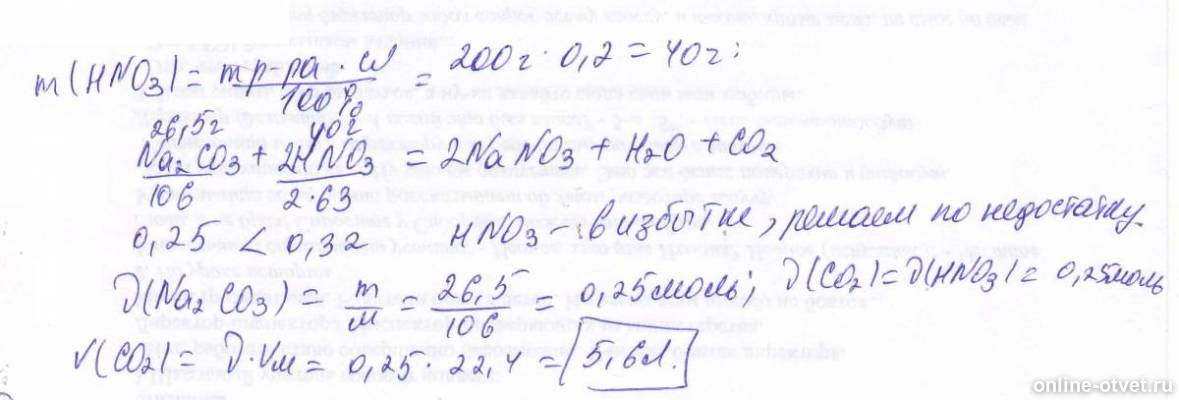 m(HNO3) = mр-ра · ω / 100% = 200г · 0,2 = 40г;
26,5г 40г
Na2CO3 + 2HNO3 = 2NaNO3 + H2O + CO2
106 2·63
0,25 < 0,32 HNO3 - в избытке, решаем по недостатку.
ν(Na2CO3) = m/M = 26,5/106 = 0,25моль; ν(CO2) = ν(HNO3) = 0,25моль
V(CO2) = ν·Vм = 0,25 · 22,4 = 5,6л.
online-otvet.ru